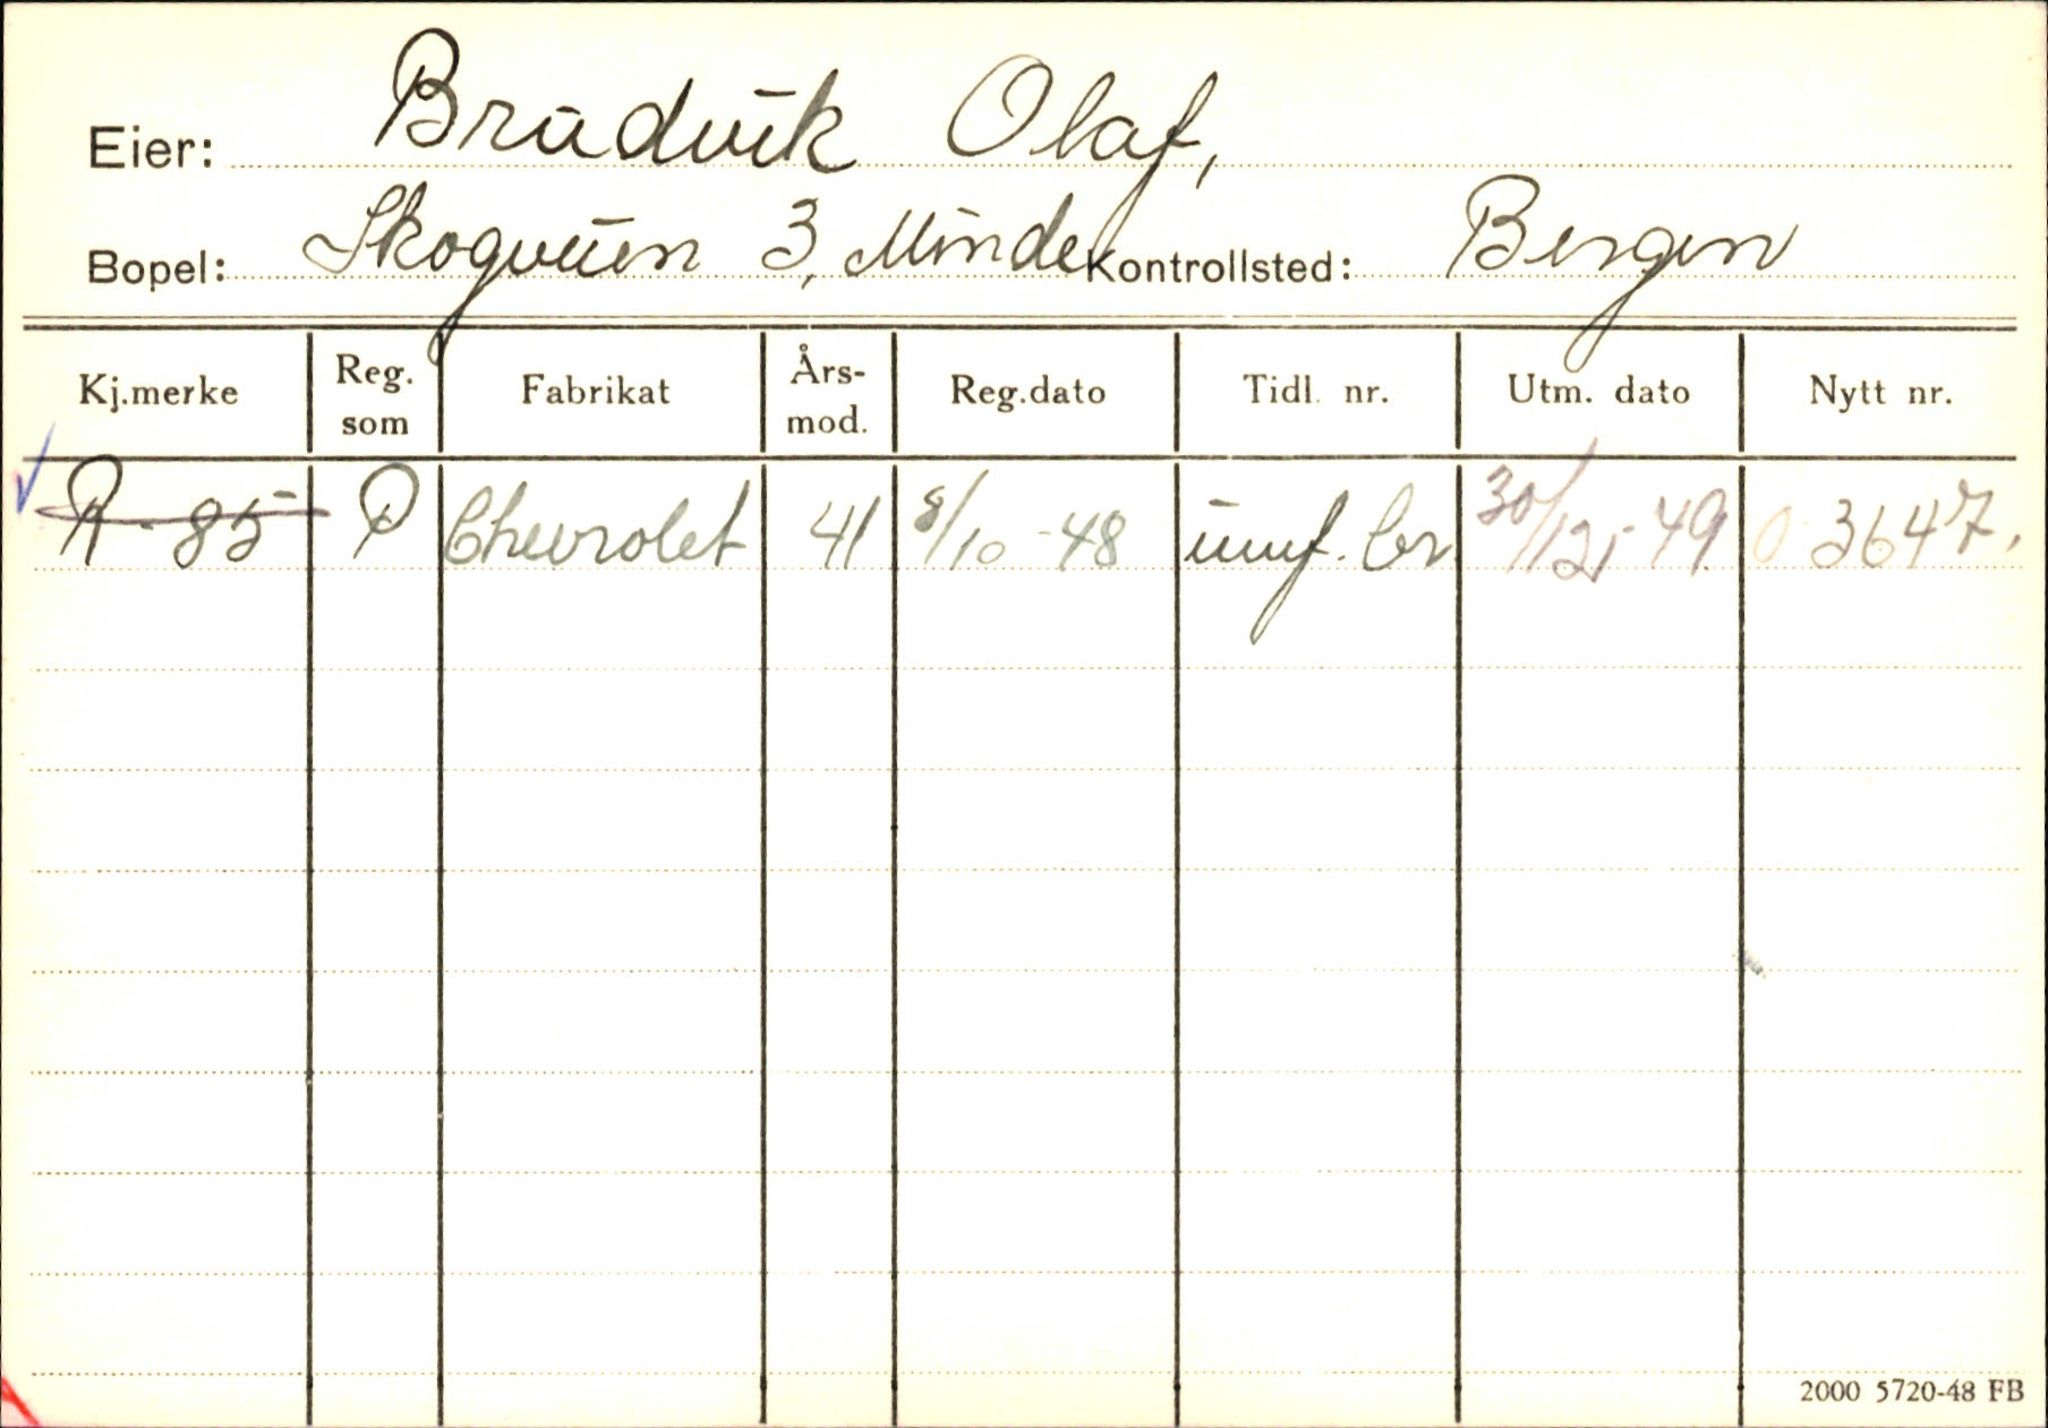 Eier: Bradvik Olaf,
Bopel: Skogveien 3, Minde Kontrollsted: Bergen
Kj.merke Reg. som Fabrikat Års-mod. Reg.dato Tidl. nr. Utm. dato Nytt nr.
R-85 P Chevrolet 41 8/10-48 30/12-49 O 3647.
2000 5720-48 FB